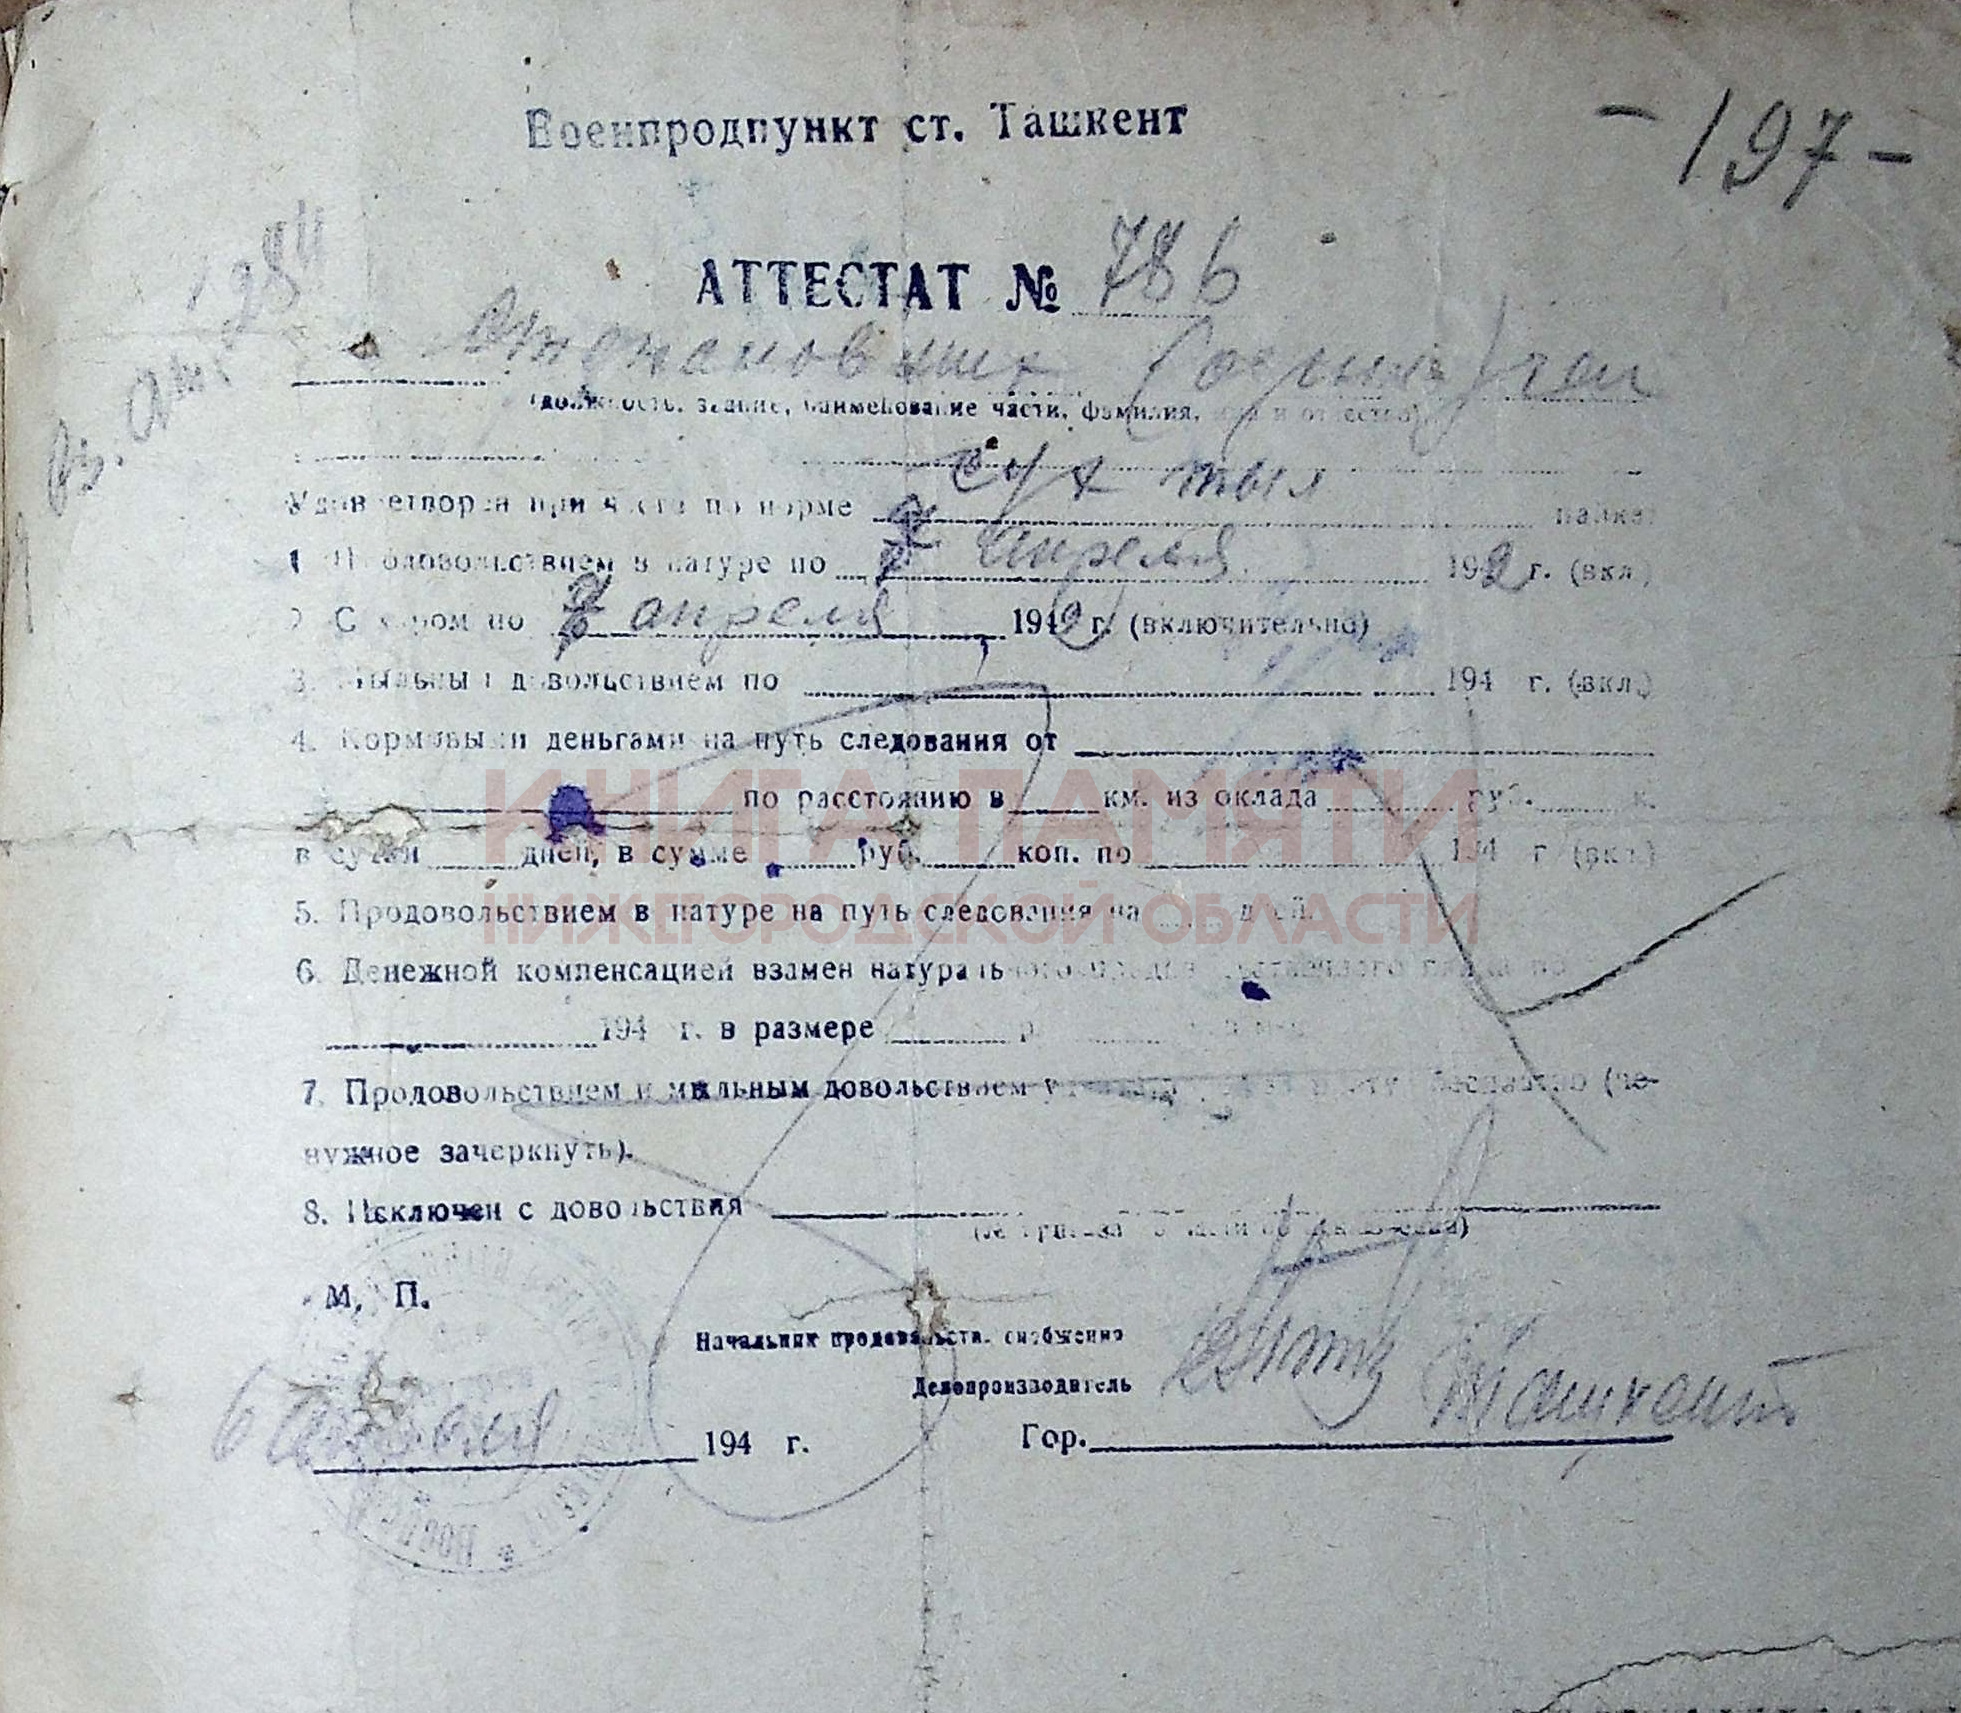 Военпродпункт ст. Ташкент
- 197 -
АТТЕСТАТ № 786
(должность, звание, наименование части, фамилия, имя и отчество)
Удовлетворен при части по норме сух тыл пайка:
1. Продовольствием в натуре по апреля 1942 г. (вкл.)
2. Сахаром по апреля 1942 г. (включительно)
3. Мыльным довольствием по 194 г. (вкл.)
4. Кормовыми деньгами на путь следования от
по расстоянию в км. из оклада руб. к.
в сутки дней, в сумме руб. коп. по 194 г. (вкл.)
5. Продовольствием в натуре на путь следования на дней.
6. Денежной компенсацией взамен натурального
194 г. в размере
7. Продовольствием и мыльным довольствием бесплатно (не-
нужное зачеркнуть).
8. Исключен с довольствия
М. П.
Начальник продовольств. снабжения
Делопроизводитель
6 апреля 194 г. Гор. Ташкент
КНИГА ПАМЯТИ
НИЖЕГОРОДСКОЙ ОБЛАСТИ